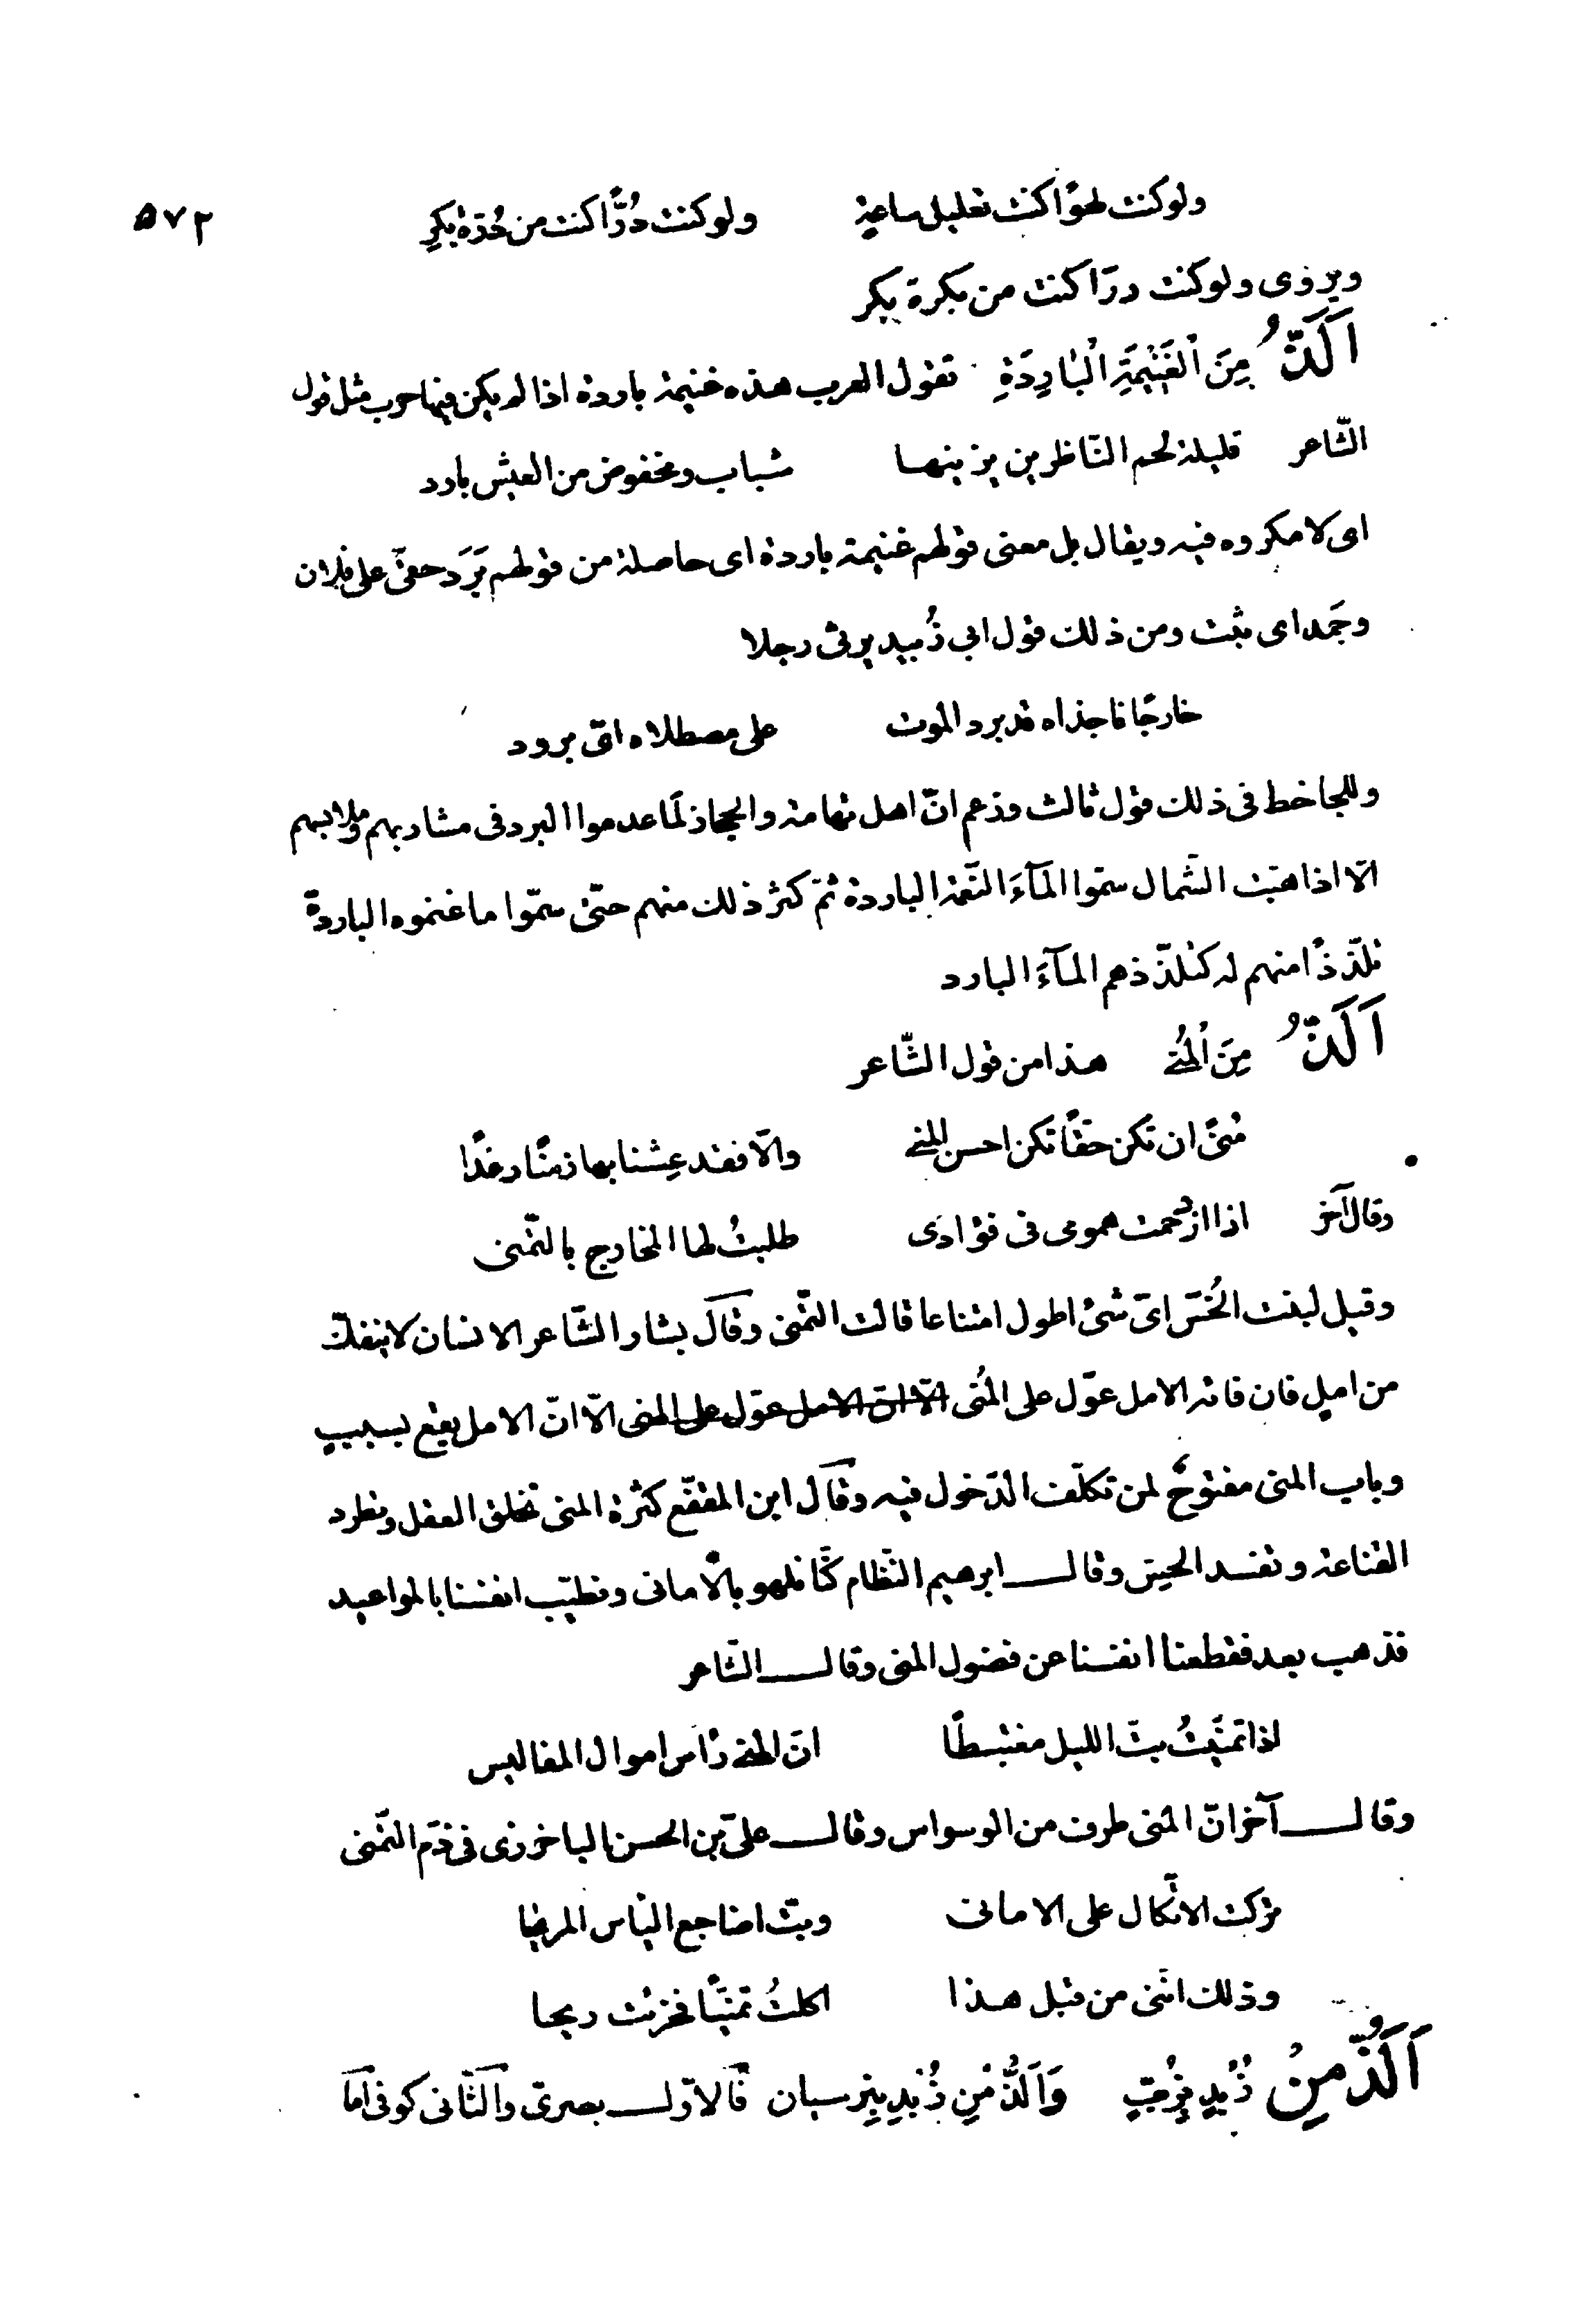 ولو كنت لهوًا كنت تعليل ساعةٍ ولو كنت دُرًّا كنت من دُرّة بكرِ ٥٧٢
ويروى ولو كنت درّا كنت من بكرة بكر
اَلَذُّ مِنَ الْغَنِيْمَةِ الْبٰارِدَةِ تقول العرب هذه غنيمة باردة اذا لم يكن فيها حرب مثل قول
الشّاعر قليلة لحم النّاظرين يزينها شباب ومخفوض من العيش بارد
اى لا مكروه فيه ويقال بل معنى قولهم غنيمة باردة اى حاصلة من قولهم بَرَدَ حقىّ على فلان
وجَمَد اى ثبت ومن ذلك قول ابى زُبيد يرثى رجلا
خارجًا ناجذاه قد برد الموت على مصطلاه اىّ برود
وللجاخط فى ذلك قول ثالث وزعم انّ اهل تهامة والحجاز لمّا عدموا البرد فى مشاربهم وملابسهم
الّا اذا هبّت الشّمال سمّوا المآءَ النّعمة الباردة ثمّ كثر ذلك منهم حتّى سمّوا ما غنموه الباردة
تلذّذًا منهم له كتلذّذهم المآءَ البارد
اَلَذُّ مِنَ الْمُنٰى هذا من قول الشّاعر
مُنىً ان تكن حقًّا تكن احسن المنى والّا فقد عِشنا بها زمنًا رغدًا
وقال آخر اذا ازدحمت همومى فى فؤادى طلبتُ لها المخارج بالتّمنى
وقيل لبنت الخُسّ اىّ شئ اطول امتناعا قالت التّمنى وقال بشار الشّاعر الانسان لا ينفكّ
من املٍ فان فاته الامل عوّل على المُنى الّا انّ الامل عوّل على المنى الّا انّ الامل يقع بسببٍ
وباب المنى مفتوحٌ لمن تكلّف الدّخول فيه وقال ابن المقفّع كثرة المنى تخلق العقل وتطرد
القناعة وتفسد الحسّ وقال ابرهيم النّظام كنّا نلهو بالأمانى ونطيّب انفسنا بالمواعيد
فذهب بعد فقطعنا انفسنا عن فضول المنى وقال الشّاعر
اذا تمنّيتُ بتّ الليل مغتبطًا انّ المنى رأس اموال المفاليس
وقال آخر انّ المنى طرف من الوسواس وقال علىّ بن الحسن الباخرزى فى ذمّ التّمنى
تركت الاتّكال على الامانى وبتّ اضاجع الياس المريحا
وذلك انّنى من قبل هذا اكلتُ تمنّيًا فخرئت ريحا
اَلَذُّ مِنْ زُبْدٍ بِزُبٍّ وَاَلَذُّ مْنِ زُبْدٍ بِنِرسيان فالاوّل بصرىّ والثّانى كوفى امّا